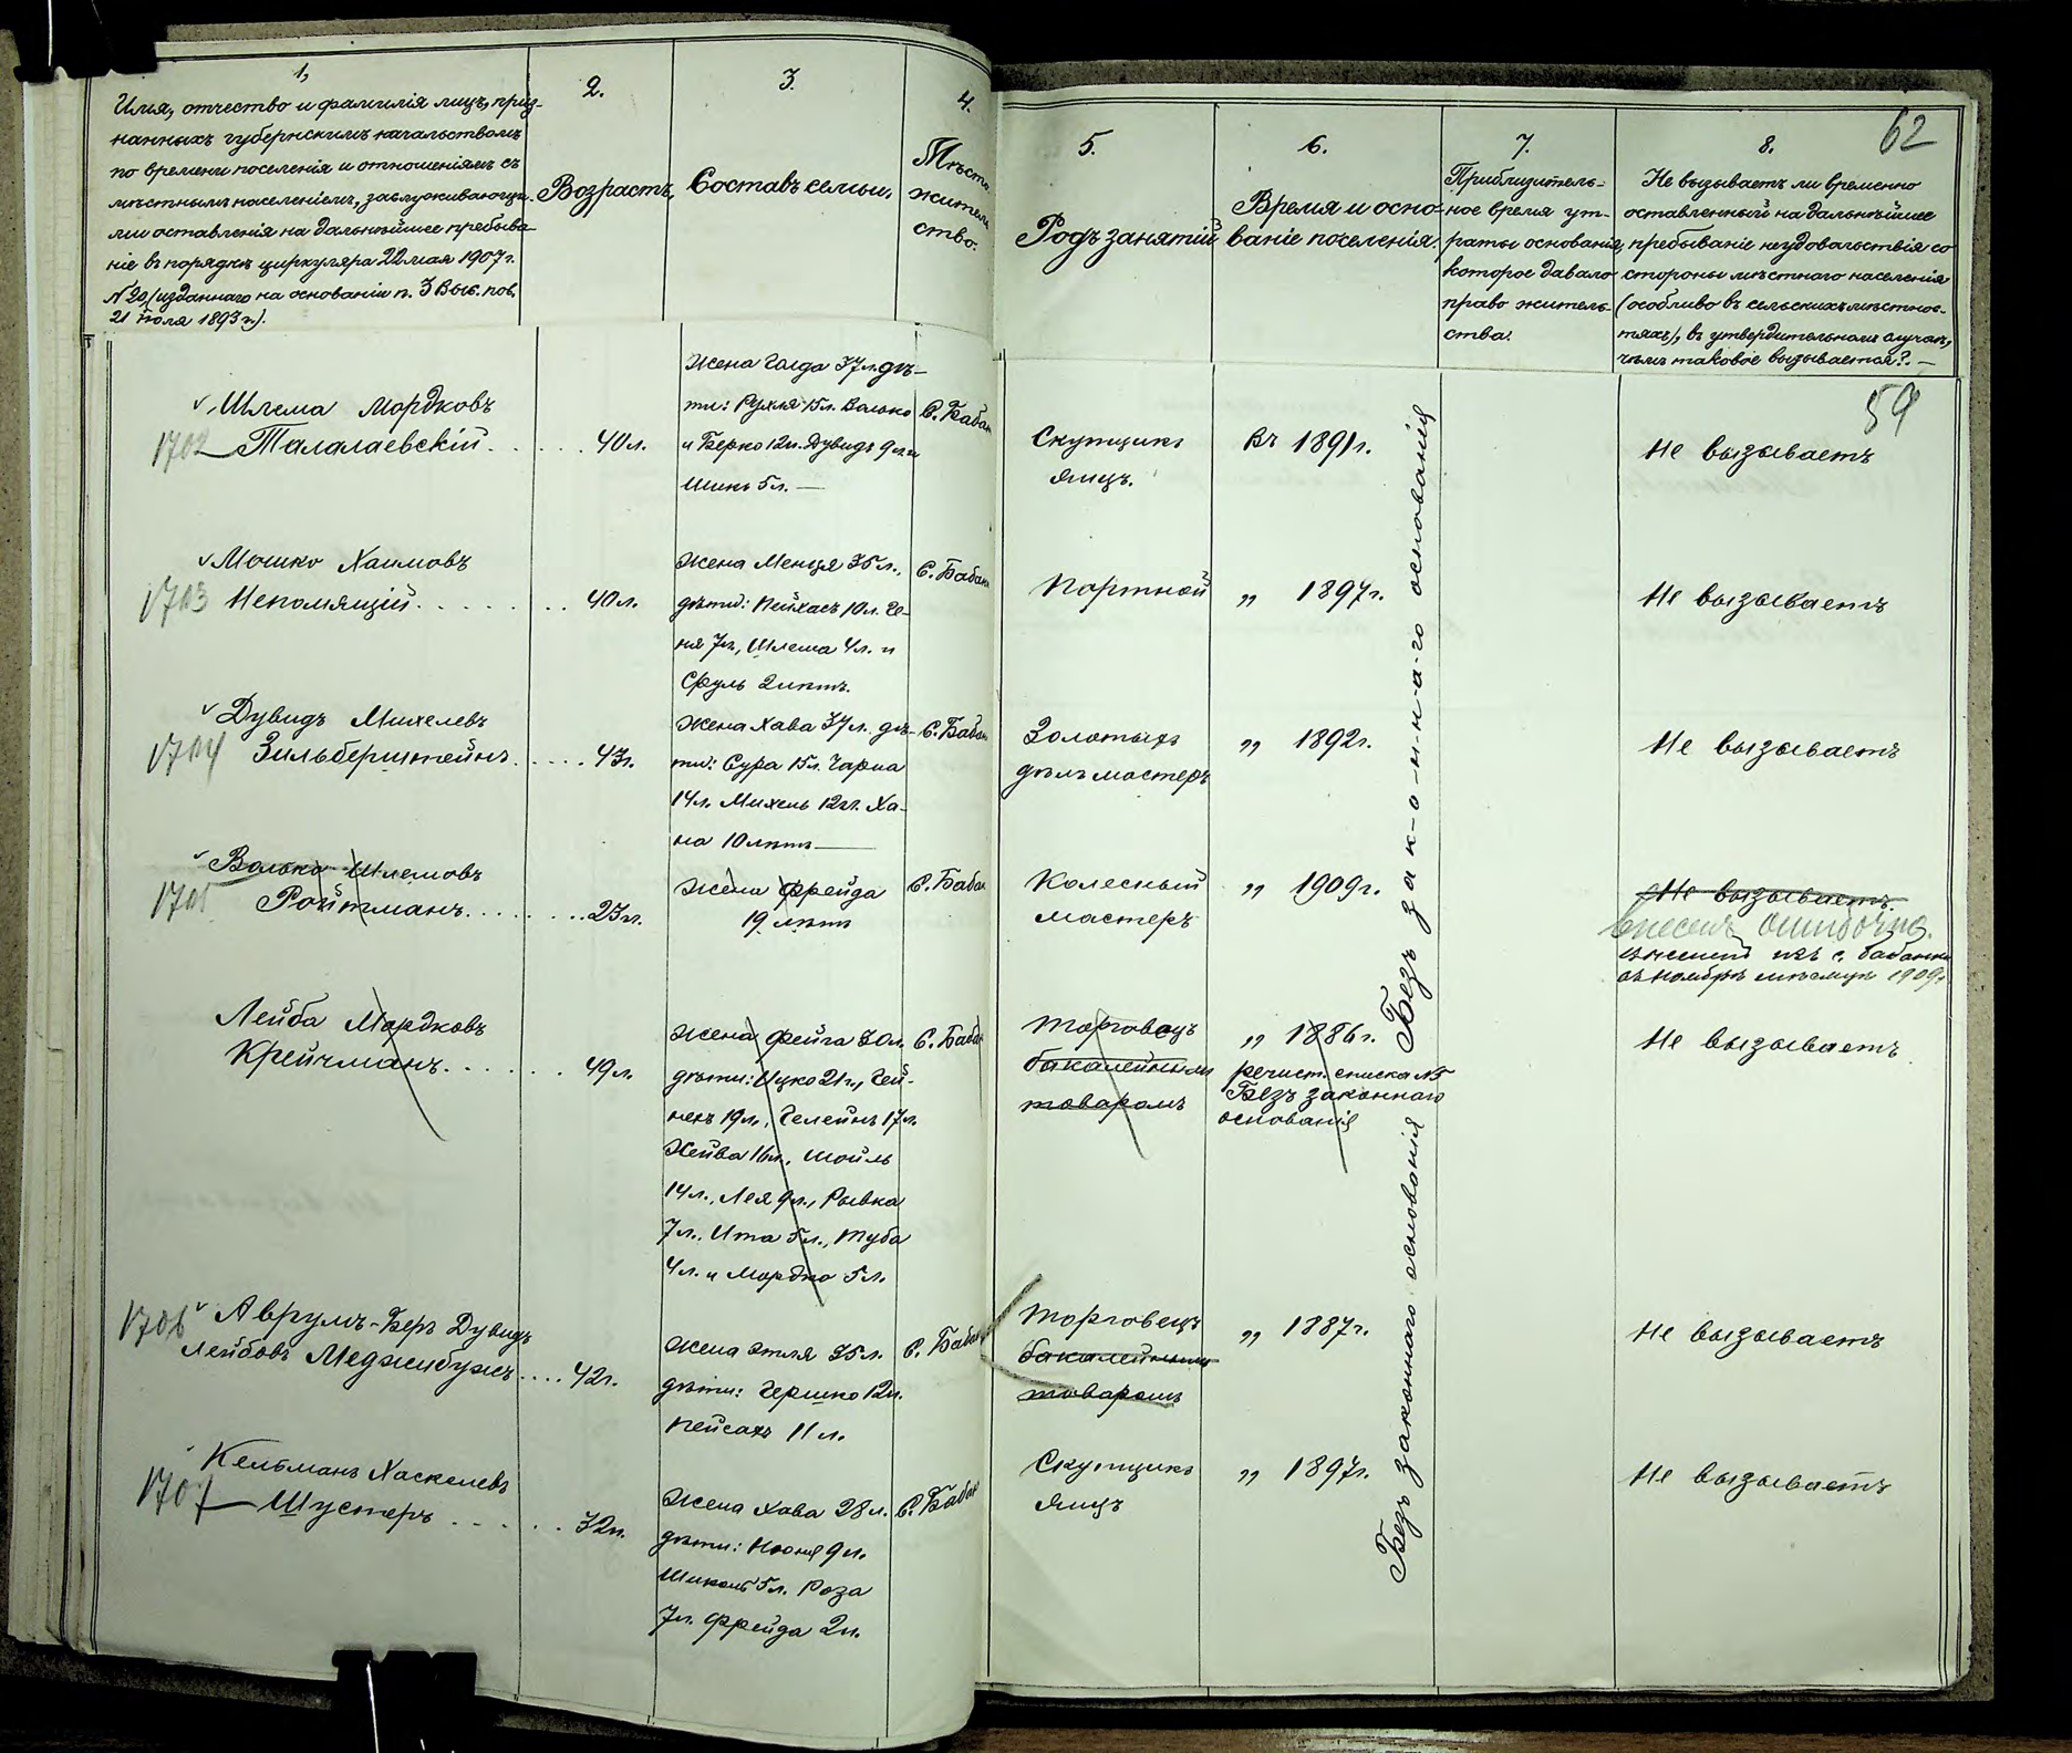 62
1,
Имя, отчество и фамилія лицъ, приз-
нанныхъ губернскимъ начальствомъ
по времени поселенія и отношеніямъ съ
мѣстнымъ населеніемъ, заслуживающи-
ми оставленія на дальнѣйшее пребыва-
ніе въ порядкѣ циркуляра 22 мая 1907 г.
№ 20, (изданнаго на основаніи п. 3 Выс. пов.
21 іюля 1893 г.).
2.
Возрастъ.
3.
Составъ семьи.
4.
Мѣсто
житель
ство.
5.
Родъ занятій
6.
Время и осно-
ваніе поселенія.
7.
Приблизитель-
ное время ут-
раты основанія,
которое давало
право житель-
ства.
8.
Не вызываетъ ли временно
оставленный на дальнѣйшее
пребываніе неудовольствія со
стороны мѣстнаго населенія
(особливо въ сельскихъ мѣстнос-
тяхъ), въ утвердительномъ случаѣ,
чѣмъ таковое вызывается?. —
59
Шлема Мордковъ
1702 Талалаевскій . . . . . . 40 л.
Жена Голда 37 л. дѣ-
ти: Рухля 15 л. Волько
и Берко 12 л. Дувидъ 9 л. и
Шика 5 л. —
С. Бабан
Скупщикъ
яицъ.
Въ 1891 г.
Не вызываетъ
Мошко Хаимовъ
1703 Непомящій . . . . . . . 40 л.
Жена Менця 35 л.,
дѣти: Пейхасъ 10 л. Ге-
ня 7 л., Шлема 4 л. и
Сруль 2 лѣтъ.
С. Бабан
Портной
„ 1897 г.
Не вызываетъ
Дувидъ Михелевъ
1704 Зильберштейнъ . . . . . 43 г.
Жена Хава 37 л. дѣ-
ти: Сура 15 л. Чарна
14 л. Михель 12 л. Ха-
на 10 лѣтъ —
С. Бабан
Золотыхъ
дѣлъ мастеръ
„ 1892 г.
Не вызываетъ
Волько Шлемовъ
1705 Ройтманъ . . . . . . . . 23 г.
Жена Фрейда
19 лѣтъ
С. Бабан
Колесный
мастеръ
„ 1909 г.
Не вызываетъ.
внесенъ ошибочно.
изъ с. Бабанки
въ ноябрѣ мѣсяцѣ 1909 г.
Лейба Мордковъ
Крейчманъ . . . . . . . 49 л.
Жена Фейга 50 л.
дѣти: Ицко 21 г., Гей-
нехъ 19 л., Гелейнъ 17 л.
Хейва 16 л., Шойль
14 л., Лея 9 л., Рывка
7 л., Ита 5 л., Туба
4 л. и Мордко 5 л.
С. Бабан
Торговецъ
бакалейнымъ
товаромъ
„ 1886 г.
регист. списка №5
Безъ законнаго
основанія
Не вызываетъ
1706 Аврумъ-Беръ Дувидъ
Лейбовъ Меджибужъ . . . . 42 г.
Жена Этля 35 л.
дѣти: Гершко 12 л.
Пейсахъ 11 л.
С. Бабан
Торговецъ
бакалейнымъ
товаромъ
„ 1887 г.
Не вызываетъ
Кельманъ Хаскелевъ
1707 Шустеръ . . . . . . 32 л.
Жена Хава 28 л.
дѣти: Нюня 9 л.
5 л. Роза
7 л. Фрейда 2 л.
С. Бабан
Скупщикъ
яицъ
„ 1897 г.
Не вызываетъ
Безъ за-к-о-н-н-а-го основанія
Безъ законнаго основанія